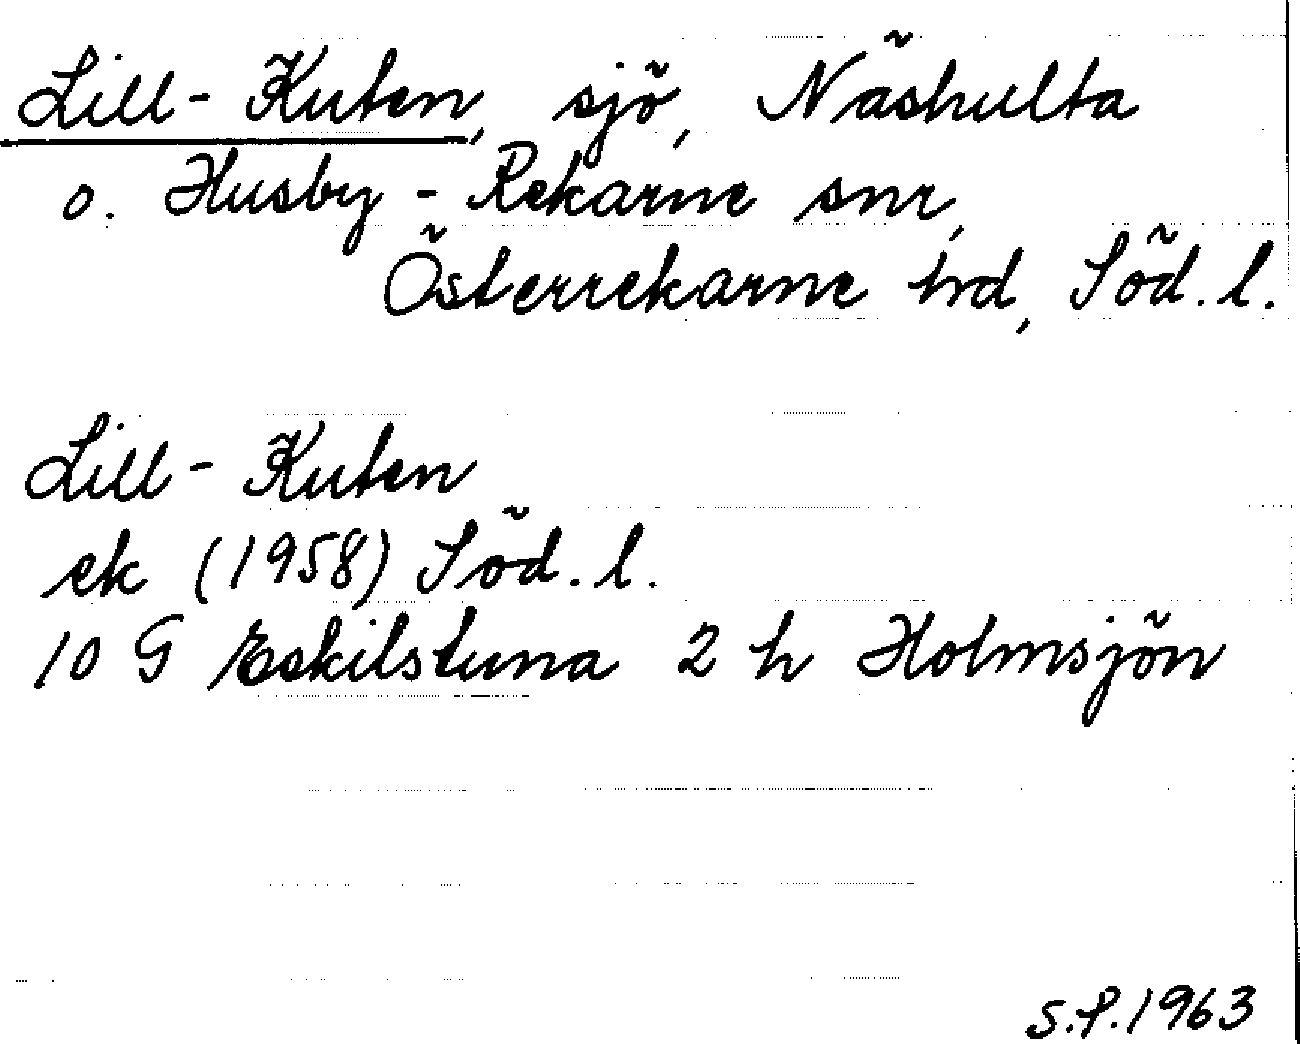 Lill-Kuten, sjö, Näshulta
o. Husby-Rekarne snr,
Österrekarne hrd, Söd. l.
Lill-Kuten
ek (1958) Söd. l.
10 G Eskilstuna 2 h Holmsjön
S.P. 1963